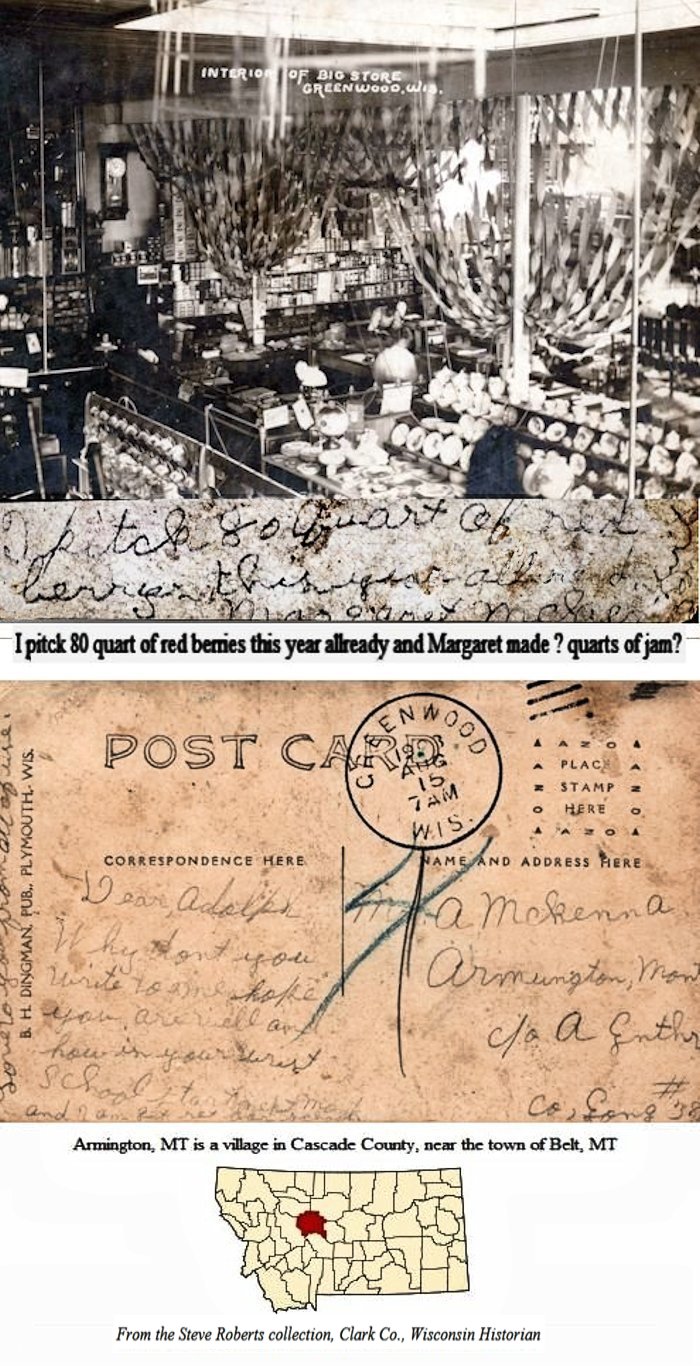 INTERIOR OF BIG STORE
GREENWOOD, WIS.
I pitck 80 quart of red
berrys this year allread
Margaret
I pitck 80 quart of red berries this year allready and Margaret made ? quarts of jam?
POST CARD
GREENWOOD
AUG
15
7 AM
WIS.
AZO
PLACE
STAMP
HERE
AZO
B. H. DINGMAN, PUB., PLYMOUTH, WIS.
CORRESPONDENCE HERE
NAME AND ADDRESS HERE
Dear, Adolph
Why dont you
write to me hope
you are well and
how is your wrist
School start next
and I am
A McKenna
Armington, Mon
c/o A
Co, Gong #38
Armington, MT is a village in Cascade County, near the town of Belt, MT
From the Steve Roberts collection, Clark Co., Wisconsin Historian